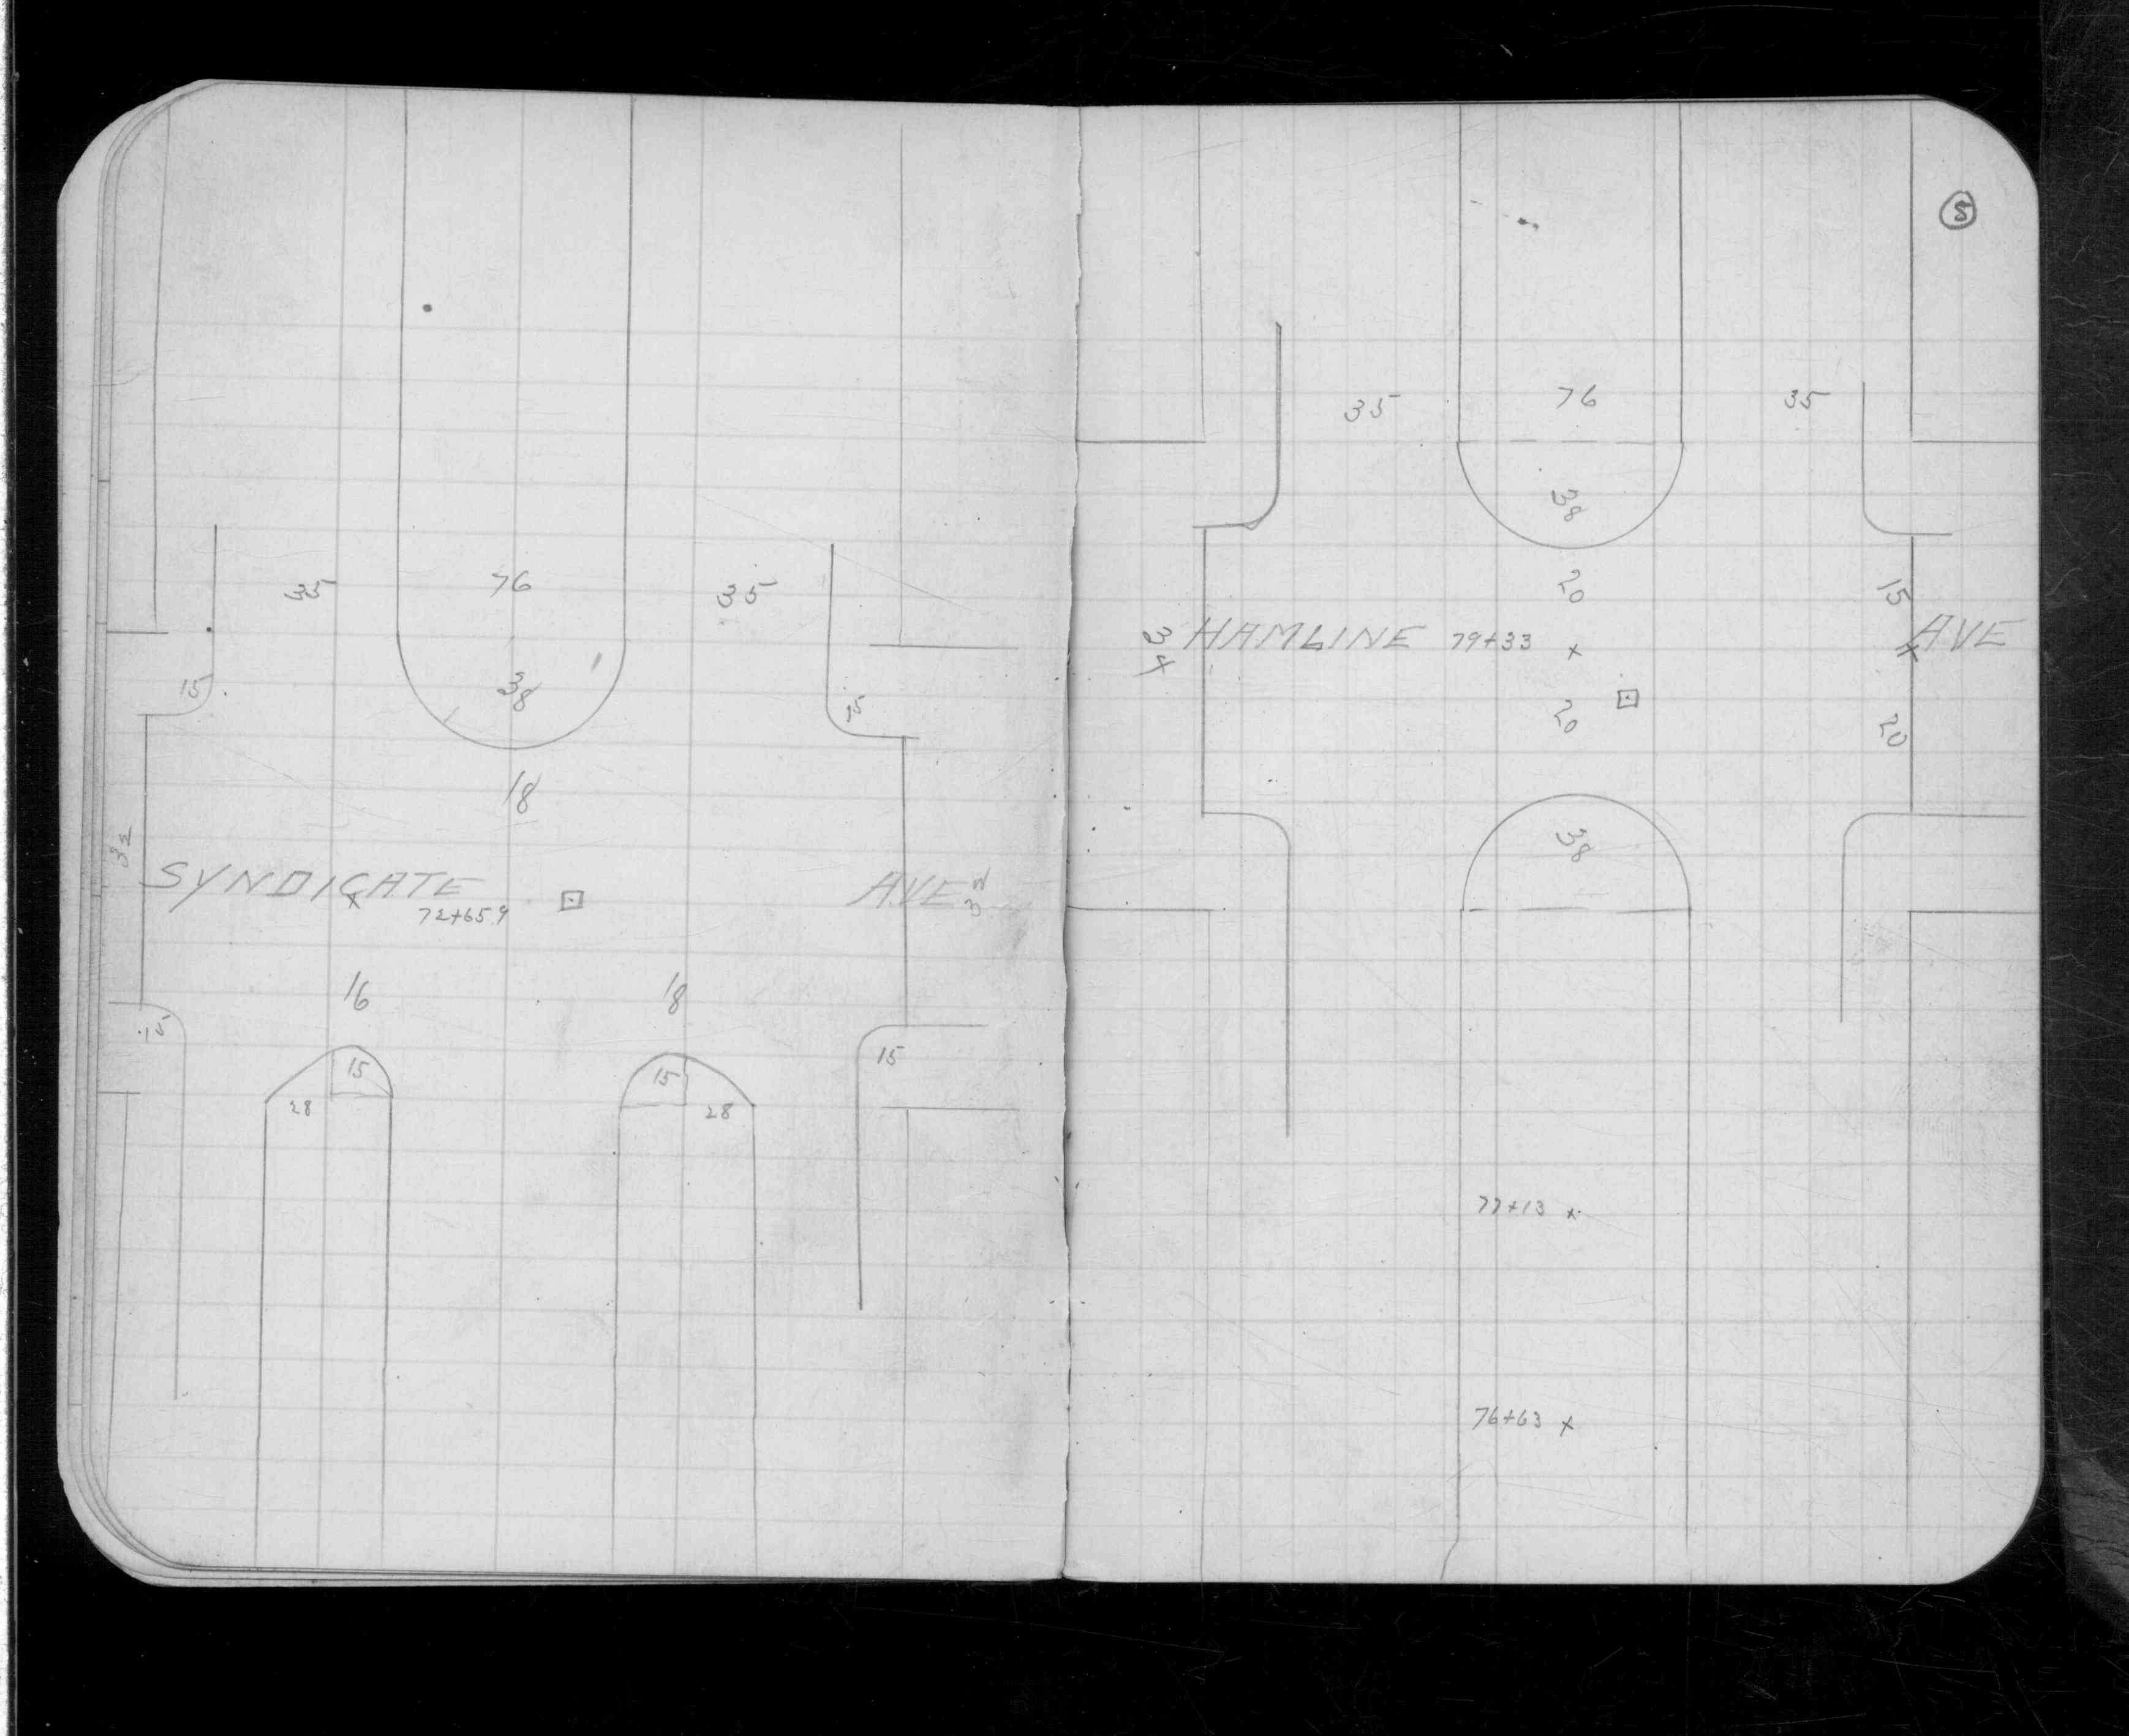 35 76 35
15 38 15
18
32
SYNDICATE AVE
72+65.9
16 18
15
15 15 15
28 28
5
35 76 35
38
20 15
34 HAMLINE 79+33 x AVE
20 20
38
77+13 x
76+63 x